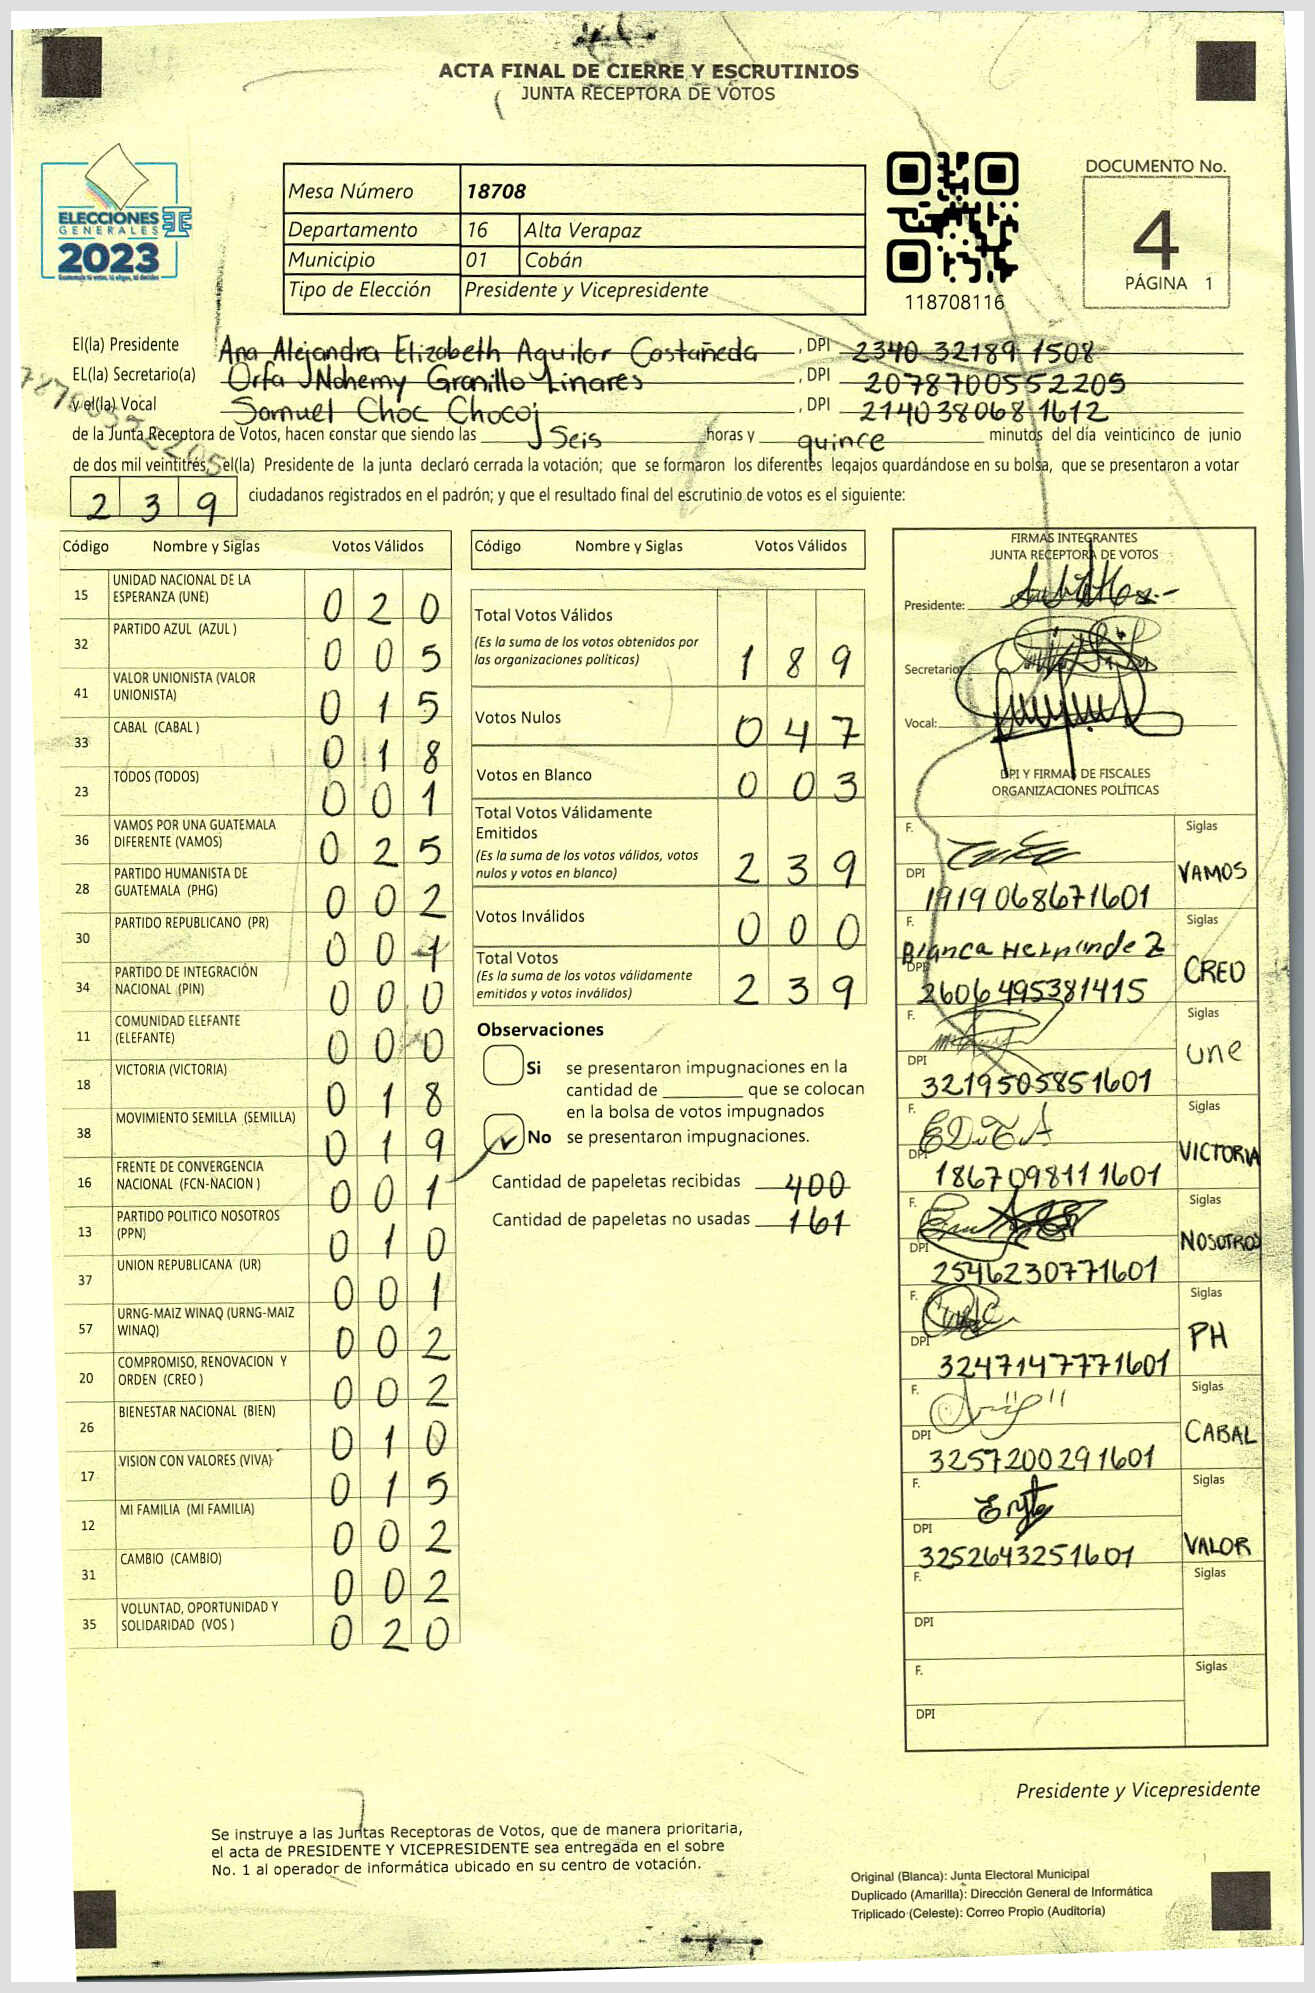 ACTA FINAL DE CIERRE Y ESCRUTINIOS
JUNTA RECEPTORA DE VOTOS
ELECCIONES
GENERALES
2023
Mesa Número 18708
Departamento 16 Alta Verapaz
Municipio 01 Cobán
Tipo de Elección Presidente y Vicepresidente
118708116
DOCUMENTO No.
4
PÁGINA 1
El(la) Presidente Ana Alejandra Elizabeth Aguilar Castañeda , DPI 2340 32189 1508
EL(la) Secretario(a) Orfa Nohemy Granillo Linares , DPI 2078700552205
y el(la) Vocal Samuel Choc Chocoj , DPI 2140380681612
de la Junta Receptora de Votos, hacen constar que siendo las Seis horas y quince minutos del día veinticinco de junio
de dos mil veintitrés, el(la) Presidente de la junta declaró cerrada la votación; que se formaron los diferentes legajos guardándose en su bolsa, que se presentaron a votar
239 ciudadanos registrados en el padrón; y que el resultado final del escrutinio de votos es el siguiente:
Código Nombre y Siglas Votos Válidos
15 UNIDAD NACIONAL DE LA ESPERANZA (UNE) 020
32 PARTIDO AZUL (AZUL ) 005
41 VALOR UNIONISTA (VALOR UNIONISTA) 015
33 CABAL (CABAL ) 018
23 TODOS (TODOS) 001
36 VAMOS POR UNA GUATEMALA DIFERENTE (VAMOS) 025
28 PARTIDO HUMANISTA DE GUATEMALA (PHG) 002
30 PARTIDO REPUBLICANO (PR) 001
34 PARTIDO DE INTEGRACIÓN NACIONAL (PIN) 000
11 COMUNIDAD ELEFANTE (ELEFANTE) 000
18 VICTORIA (VICTORIA) 018
38 MOVIMIENTO SEMILLA (SEMILLA) 019
16 FRENTE DE CONVERGENCIA NACIONAL (FCN-NACION ) 001
13 PARTIDO POLITICO NOSOTROS (PPN) 010
37 UNION REPUBLICANA (UR) 001
57 URNG-MAIZ WINAQ (URNG-MAIZ WINAQ) 002
20 COMPROMISO, RENOVACION Y ORDEN (CREO ) 002
26 BIENESTAR NACIONAL (BIEN) 010
17 VISION CON VALORES (VIVA) 015
12 MI FAMILIA (MI FAMILIA) 002
31 CAMBIO (CAMBIO) 002
35 VOLUNTAD, OPORTUNIDAD Y SOLIDARIDAD (VOS ) 020
Código Nombre y Siglas Votos Válidos
Total Votos Válidos
(Es la suma de los votos obtenidos por
las organizaciones políticas) 189
Votos Nulos 047
Votos en Blanco 003
Total Votos Válidamente
Emitidos
(Es la suma de los votos válidos, votos
nulos y votos en blanco) 239
Votos Inválidos 000
Total Votos
(Es la suma de los votos válidamente
emitidos y votos inválidos) 239
Observaciones
Si se presentaron impugnaciones en la
cantidad de ________ que se colocan
en la bolsa de votos impugnados
No se presentaron impugnaciones.
Cantidad de papeletas recibidas 400
Cantidad de papeletas no usadas 161
FIRMAS INTEGRANTES
JUNTA RECEPTORA DE VOTOS
Presidente:
Secretario:
Vocal:
DPI Y FIRMAS DE FISCALES
ORGANIZACIONES POLÍTICAS
F. Siglas
DPI 1919068671601 VAMOS
F. Blanca Hernandez Siglas
DPI 2606495381415 CREO
F. Siglas
DPI 3219505851601 une
F. EDITA Siglas
DPI 1867098111601 VICTORIA
F. Siglas
DPI 2546230771601 NOSOTROS
F. Siglas
DPI 3247147771601 PH
F. Siglas
DPI 3257200291601 CABAL
F. Siglas
DPI 3252643251601 VALOR
F. Siglas
DPI
F. Siglas
DPI
Presidente y Vicepresidente
Se instruye a las Juntas Receptoras de Votos, que de manera prioritaria,
el acta de PRESIDENTE Y VICEPRESIDENTE sea entregada en el sobre
No. 1 al operador de informática ubicado en su centro de votación.
Original (Blanca): Junta Electoral Municipal
Duplicado (Amarilla): Dirección General de Informática
Triplicado (Celeste): Correo Propio (Auditoría)